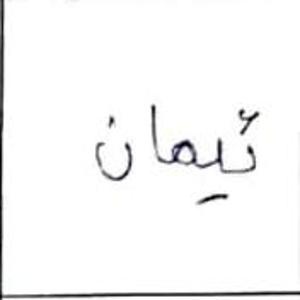 تيمان